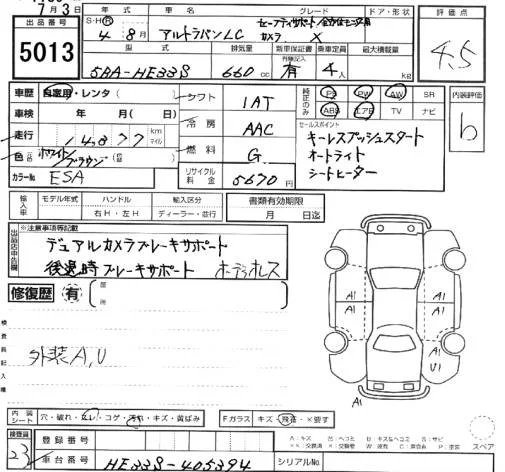 7月3日
出品番号
5013
年式 車名 グレード ドア・形状
4年8月 アルトラパンLC セーフティサポート/全方位モニター用カメラ X
型式 排気量 新車保証書 乗車定員 最大積載量
有無記入
5BA-HE33S 660cc 有 4人 kg
評価点
4.5
車歴 自家用・レンタ( )
車検 年 月( 日)
走行 1,4877 km マイル
色 ホワイト/ブラウン
カラーNo ESA
シフト IAT
冷房 AAC
燃料 G
リサイクル料金 5670円
純正のみ PS PW AW SR
ABS エアB TV ナビ
セールスポイント
キーレスプッシュスタート
オートライト
シートヒーター
内装評価
b
輸入車 モデル年式 ハンドル 輸入区分
年 右H・左H ディーラー・並行
書類有効期限
月 日迄
出品店申告欄
※注意事項等記載
デュアルカメラブレーキサポート
後退時ブレーキサポート ホーデラレス
修復歴 有
箇所
検査員記入欄
外装A,U
A1 A1 A1 A1 A1 U1 A1
内装シート 穴・破れ・スレ・コゲ・汚れ・キズ・黄ばみ
Fガラス キズ・飛石・×要す
スペア
検査員
23
登録番号
車台番号 HE33S-405394
シリアルNo